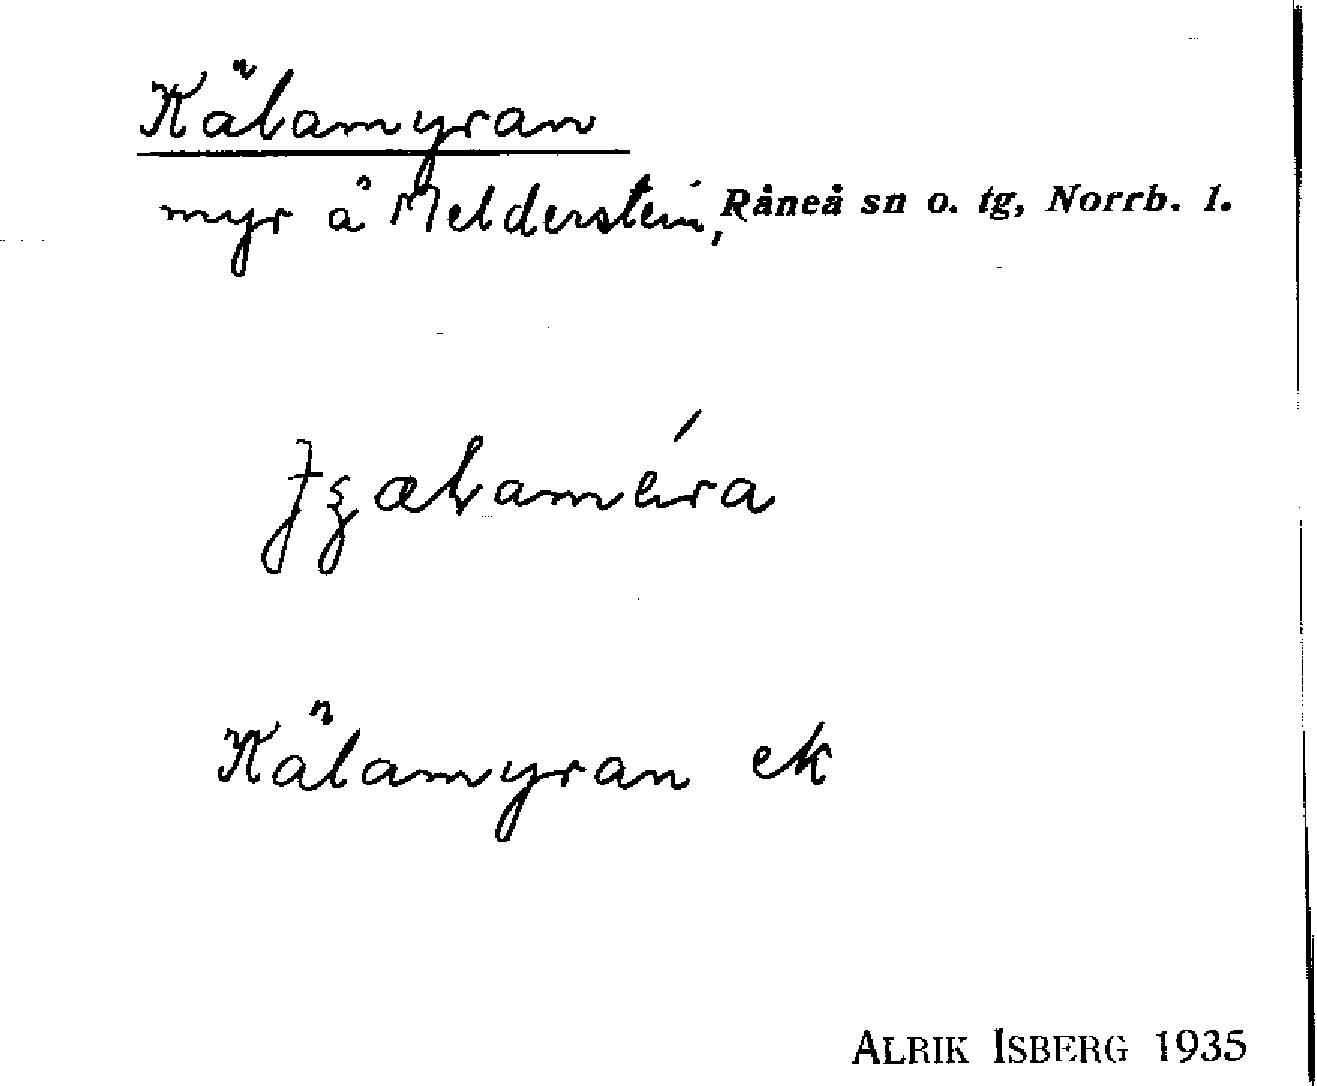 Kälamyran
myr å Melderstein, Råneå sn o. tg, Norrb. l.
Kälamyran ek
ALRIK ISBERG 1935